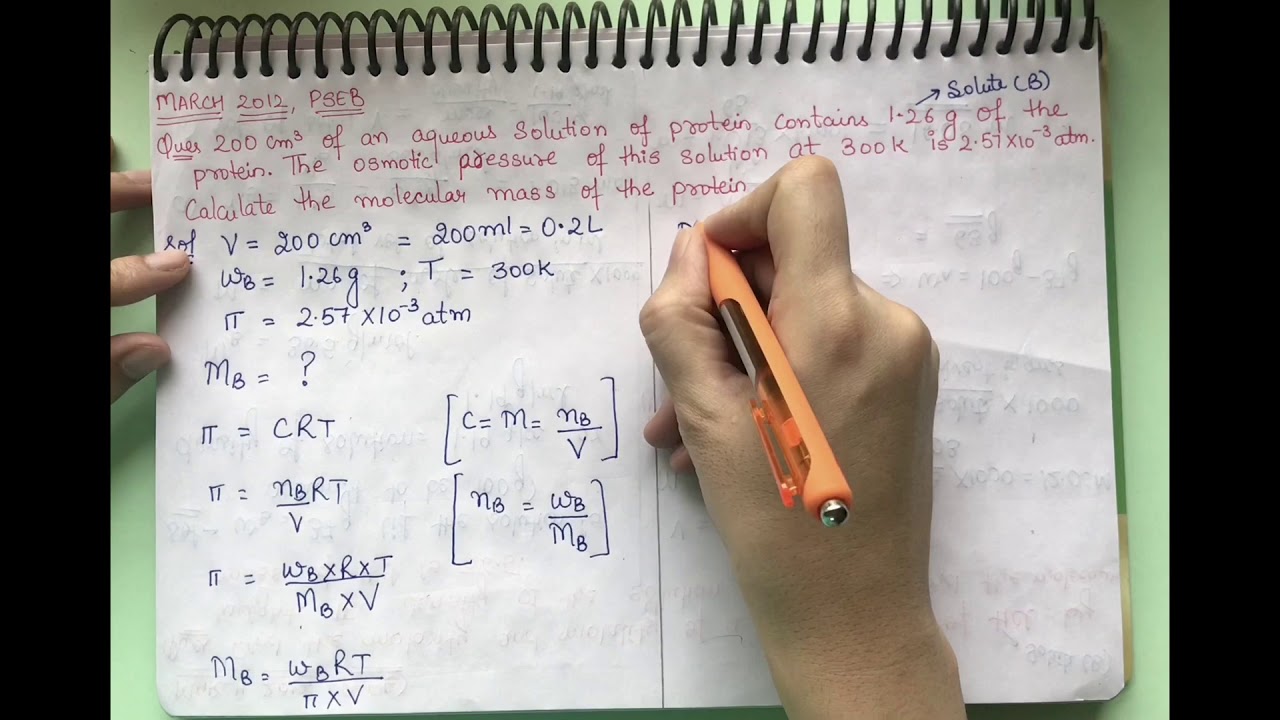 MARCH 2012, PSEB
Solute (B)
Ques 200 cm³ of an aqueous solution of protein contains 1.26 g of the
protein. The osmotic pressure of this solution at 300K is 2.57×10⁻³ atm.
Calculate the molecular mass of the protein
Sol V = 200 cm³ = 200ml = 0.2L
WB = 1.26g ; T = 300K
π = 2.57 ×10⁻³ atm
MB = ?
π = CRT [C = M = nB/V]
π = nBRT/V [nB = WB/MB]
π = WB×R×T/MB×V
MB = WBRT/π×V